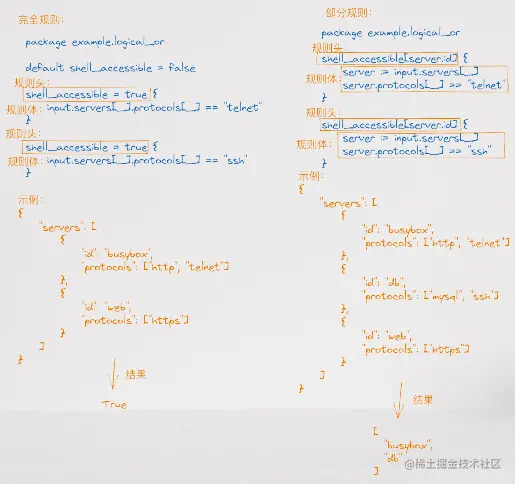 完全规则：
package example.logical_or
default shell_accessible = false
规则头：
shell_accessible = true {
规则体： input.servers[_].protocols[_] == "telnet"
}
规则头：
shell_accessible = true {
规则体： input.servers[_].protocols[_] == "ssh"
}
示例：
{
"servers": [
{
"id": "busybox",
"protocols": ["http", "telnet"]
},
{
"id": "web",
"protocols": ["https"]
}
]
}
结果
True
部分规则：
package example.logical_or
规则头：
shell_accessible[server.id] {
规则体： server := input.servers[_]
server.protocols[_] == "telnet"
}
规则头：
shell_accessible[server.id] {
规则体： server := input.servers[_]
server.protocols[_] == "ssh"
}
示例：
{
"servers": [
{
"id": "busybox",
"protocols": ["http", "telnet"]
},
{
"id": "db",
"protocols": ["mysql", "ssh"]
},
{
"id": "web",
"protocols": ["https"]
}
]
}
结果
[
"busybox",
"db"
]
@稀土掘金技术社区